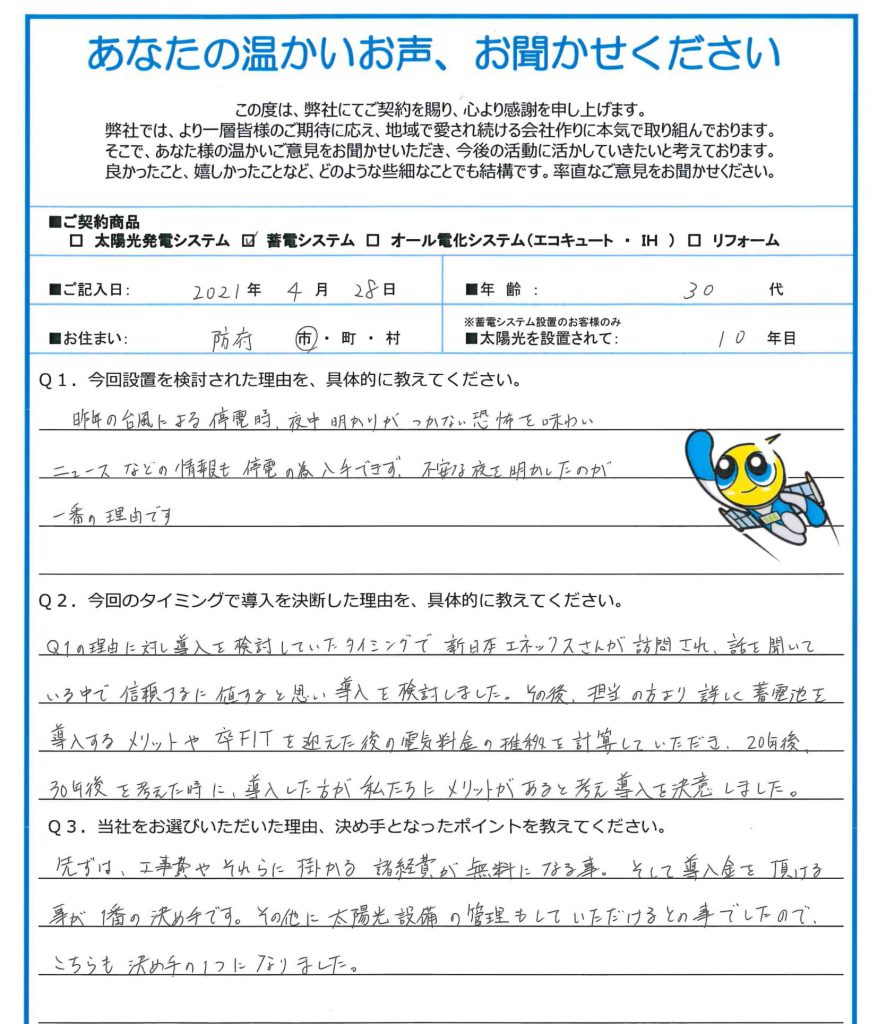 あなたの温かいお声、お聞かせください
この度は、弊社にてご契約を賜り、心より感謝を申し上げます。
弊社では、より一層皆様のご期待に応え、地域で愛され続ける会社作りに本気で取り組んでおります。
そこで、あなた様の温かいご意見をお聞かせいただき、今後の活動に活かしていきたいと考えております。
良かったこと、嬉しかったことなど、どのような些細なことでも結構です。率直なご意見をお聞かせください。
■ご契約商品
□ 太陽光発電システム ☑ 蓄電システム □ オール電化システム(エコキュート ・ IH ) □ リフォーム
■ご記入日: 2021年 4月 28日
■年 齢 : 30 代
■お住まい: 防府 市・町・村
※蓄電システム設置のお客様のみ
■太陽光を設置されて: 10 年目
Q1. 今回設置を検討された理由を、具体的に教えてください。
昨年の台風による停電時、夜中明かりがつかない恐怖を味わい
ニュースなどの情報も停電の為入手できず、不安な夜を明かしたのが
一番の理由です
Q2. 今回のタイミングで導入を決断した理由を、具体的に教えてください。
Q1の理由に対し導入を検討していたタイミングで新日本エネックスさんが訪問され、話を聞いて
いる中で信頼するに値すると思い導入を検討しました。その後、担当の方より詳しく蓄電池を
導入するメリットや卒FITを迎えた後の電気料金の推移を計算していただき、20年後、
30年後を考えた時に、導入した方が私たちにメリットがあると考え導入を決意しました。
Q3. 当社をお選びいただいた理由、決め手となったポイントを教えてください。
先ずは、工事費やそれらに掛かる諸経費が無料になる事。そして導入金を頂ける
事が1番の決め手です。その他に太陽光設備の管理もしていただけるとの事でしたので、
こちらも決め手の1つになりました。